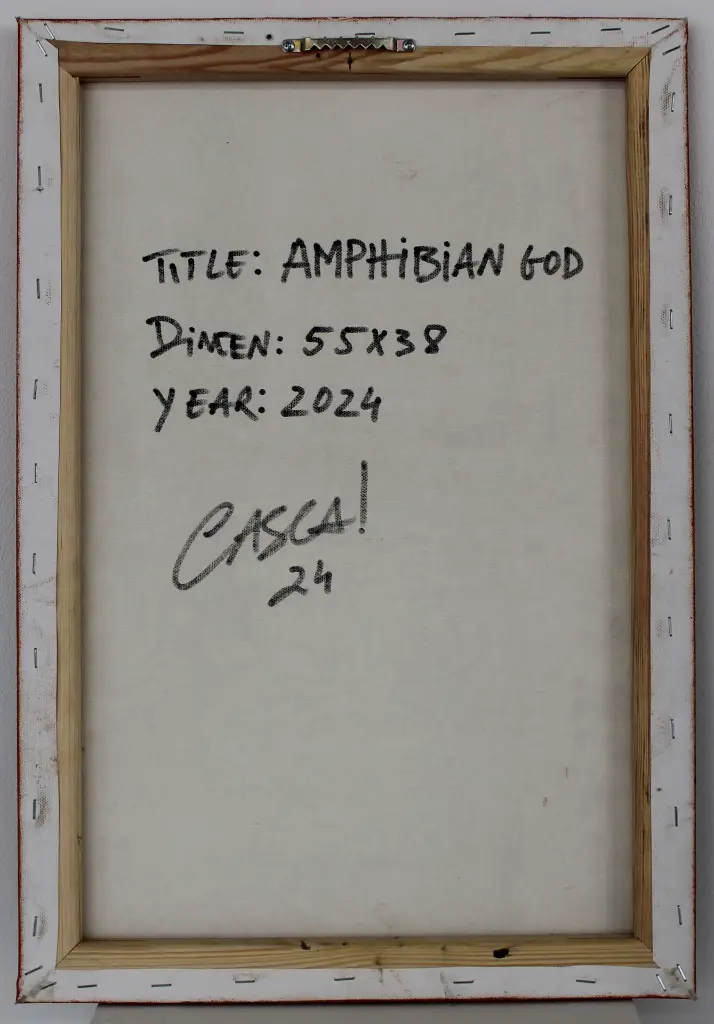 TITLE: AMPHIBIAN GOD
DIMEN: 55X38
YEAR: 2024
CASCA!
24